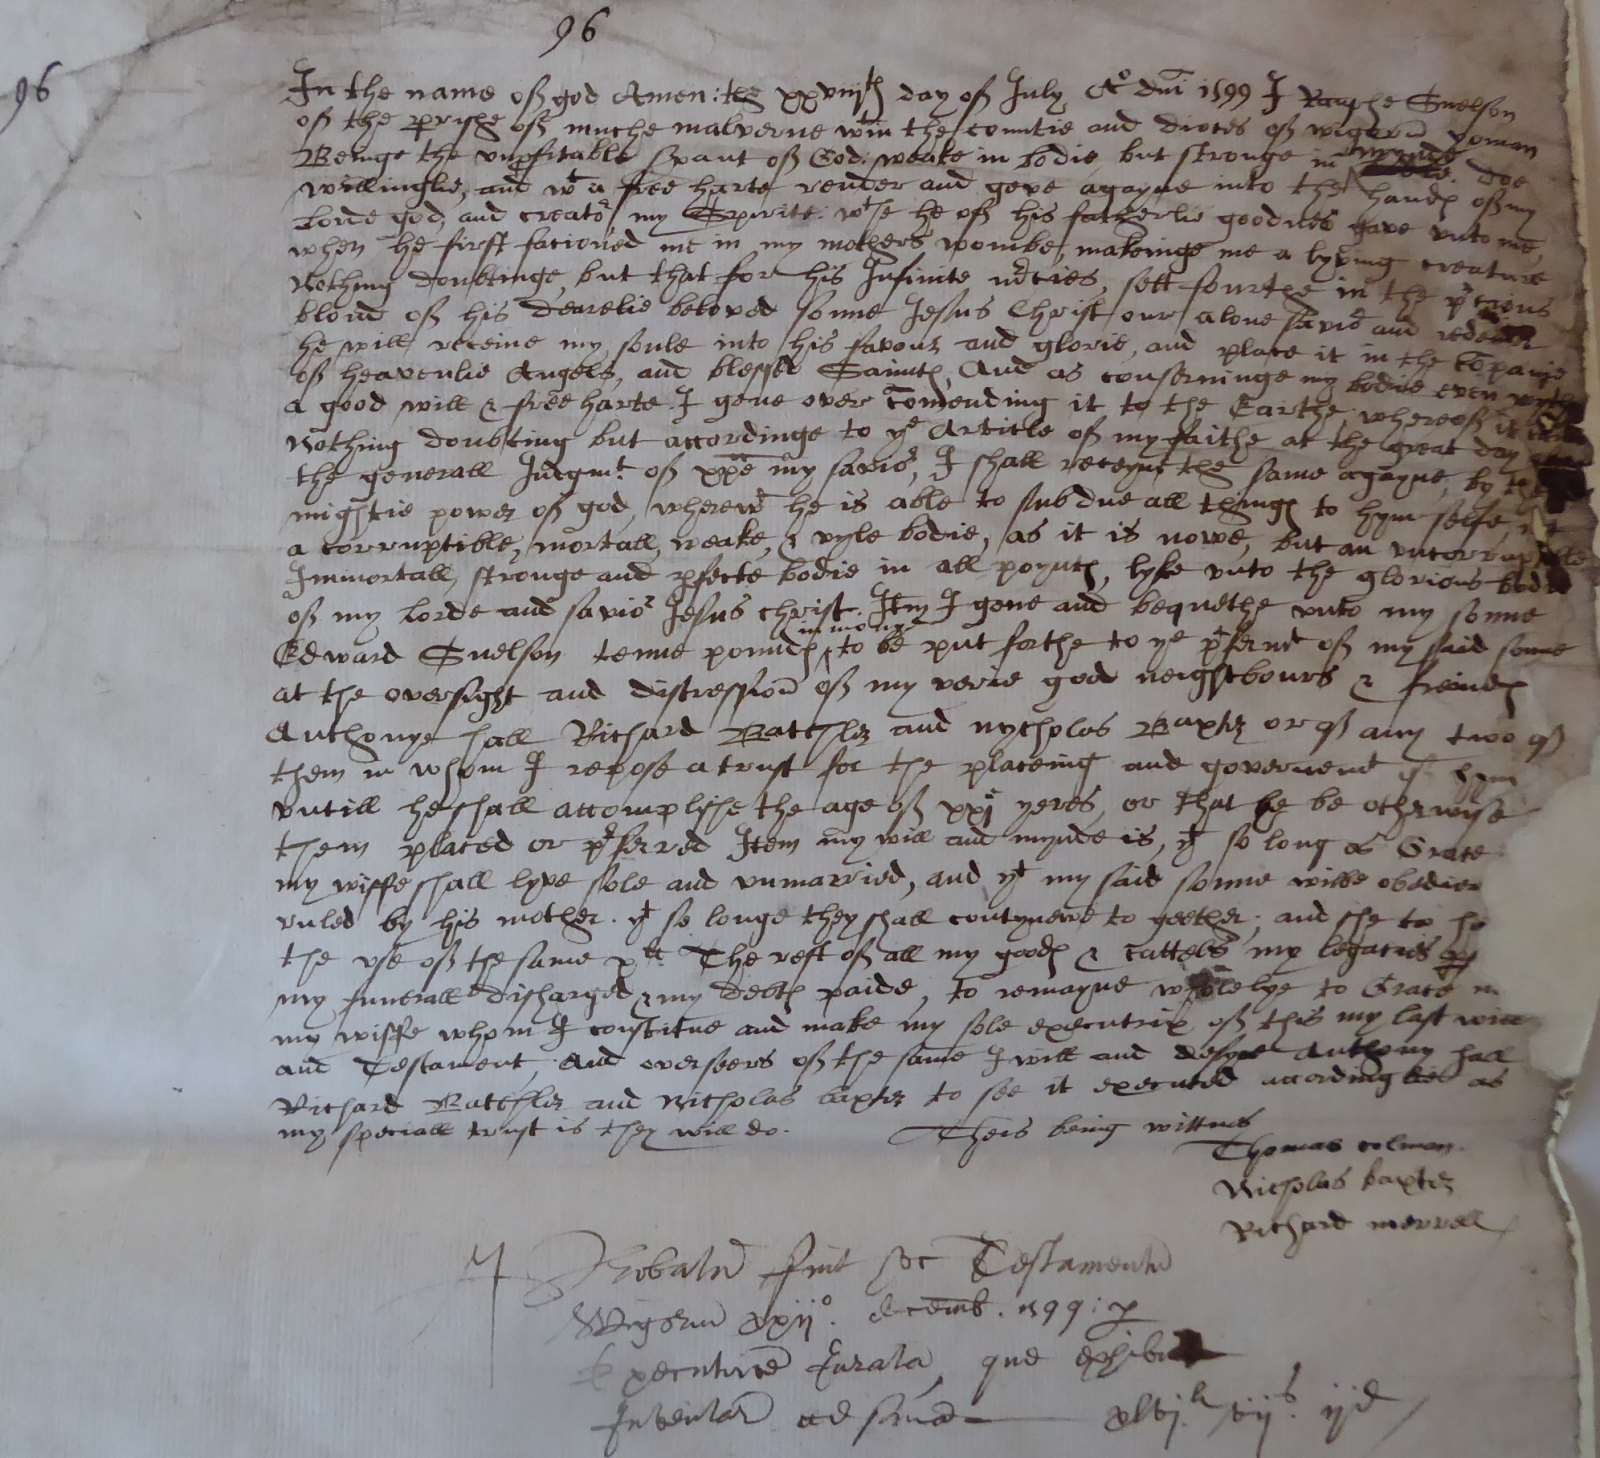 96
96
In the name off god Amen: the xxviijth day off July Ao dni 1599 I Rauphe Snelson
off the prishe off muche malverne wtin the countie and dioces off wigorn yoman
Beinge the unpfitable svant off God: weake in bodie but stronge in mynde doe
willinglie, and wt a free harte render and geve agayne into the handes off my
Lorde god, and creator my Spirite: wche he off his fatherlie goodnes gave unto me,
when he first facioned me in my mothers wombe, makeinge me a lyving creature
Nothing doubtinge, but that for his Infinite mcies, sett fourthe in the pcious
bloud off his dearelie beloved sonne Jesus Christ our alone savior and
he will receive my soule into his favour and glorie, and place it in the copanie
off heavenlie Angels, and blessed Saintes, And as conserninge my bodie even wythe
a good will & free harte I geve over comending it to the Earthe whereoff it
Nothing doubting but accordinge to ye Article off my faithe at the great day
the generall Judgmt. off xpe my savior, I shall receyve the same agayne, by the
mightie power off god, wherewt he is able to subdue all thinges to hym selfe, not
a corruptible, mortall, weake, & vyle bodie, as it is nowe, but an uncorruptible
Immortall, stronge and pfecte bodie in all poyntes, lyke unto the glorious bodie
off my Lorde and savior Jesus christ. Itm I geve and bequethe unto my sonne
in mony
Edward Snelson tenne poundes to be put forthe to ye pfermt off my said sonne
at the oversight and discression off my verie good neightbours & freindes
Anthonye hall Richard Batchler and nycholas Baxter or off any two off
them in whom I repose a trust for the placeing and governemt off hym
untill he shall accomplishe the age off xxj yeres, or that he be otherwyse
them placed or pferred Item my will and mynde is, yt so long as Grace
my wiffe shall lyve sole and unmarried, and yt my said sonne wilbe
ruled by his mother. yt so longe they shall contynewe to geether; and she to
the use off the same The rest off all my goodes & cattels my legacies
my funerall discharged & my debtes paide, to remayne whollye to Grace
my wiffe whom I constitue and make my sole executrix off this my last will
and Testament, And overseers off the same I will and desyre Anthony hall
Richard Batchler and Nicholas baxter to see it executed accordinglie as
my speciall trust is they will do. Theis being wittnes
Thomas colman.
Nicholas baxter
Richard merrell
Probatu fuit hoc Testamentu
Wigorn xxijo. decemb. 1599: p
Executrice Jurata, que exhibuit
Inventar ad sumā xlvjli. vijs. ijd